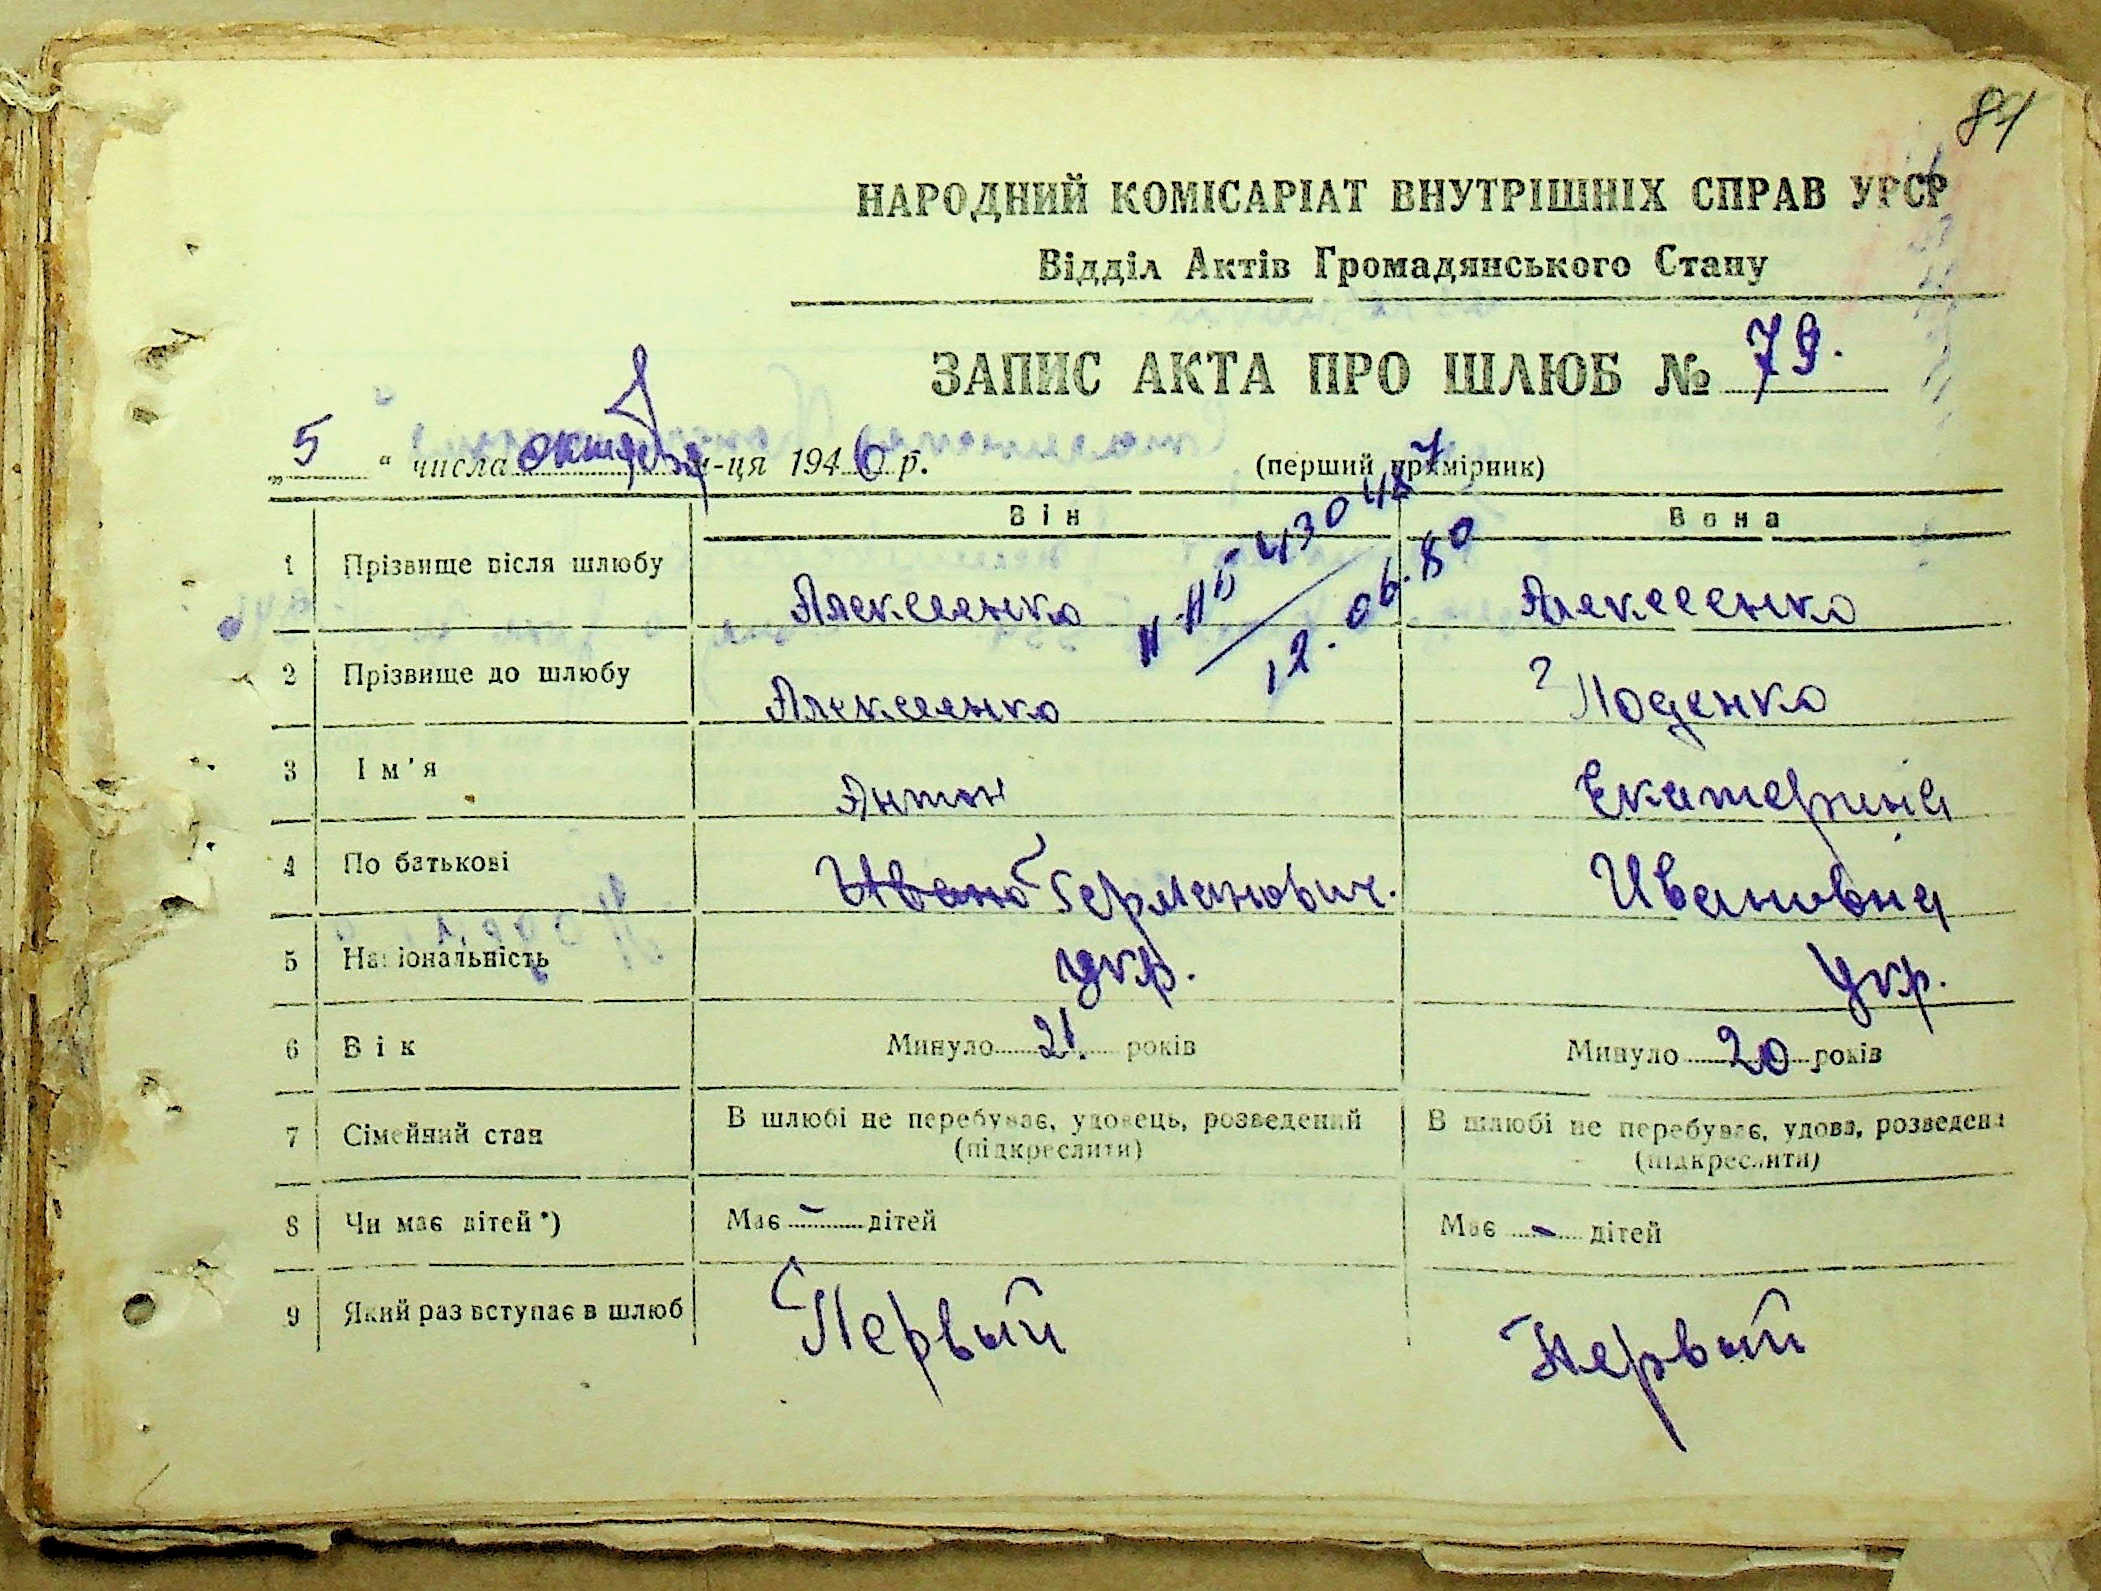 81
НАРОДНИЙ КОМІСАРІАТ ВНУТРІШНІХ СПРАВ УРСР
Відділ Актів Громадянського Стану
ЗАПИС АКТА ПРО ШЛЮБ № 79.
„ 5 “ числа октября м-ця 1946 р. (перший примірник)
Він Вона
1 Прізвище після шлюбу Алексеенко Алексеенко
2 Прізвище до шлюбу Алексеенко Лоденко
12.06.80
3 Ім'я Антон Екатерина
4 По батькові Германович. Ивановна
5 Національність укр. укр.
6 Вік Минуло 21. років Минуло 20 років
7 Сімейний стан В шлюбі не перебуває, удовець, розведений (підкреслити) В шлюбі не перебуває, удова, розведена (підкреслити)
8 Чи має дітей*) Має - дітей Має - дітей
9 Який раз вступає в шлюб Первый Первый